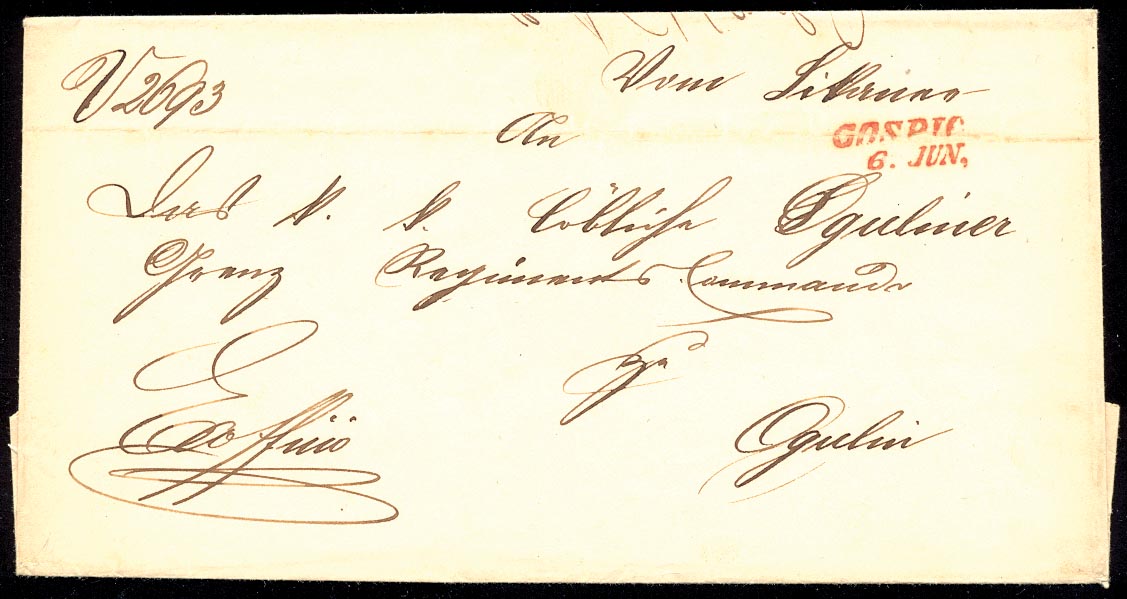 V 2693
Vom Likaner
GOSPIC
6. JUN,
An
Das k. k. löbliche Oguliner
Grenz Regiments Commando
zu
Ex offiio
Ogulin